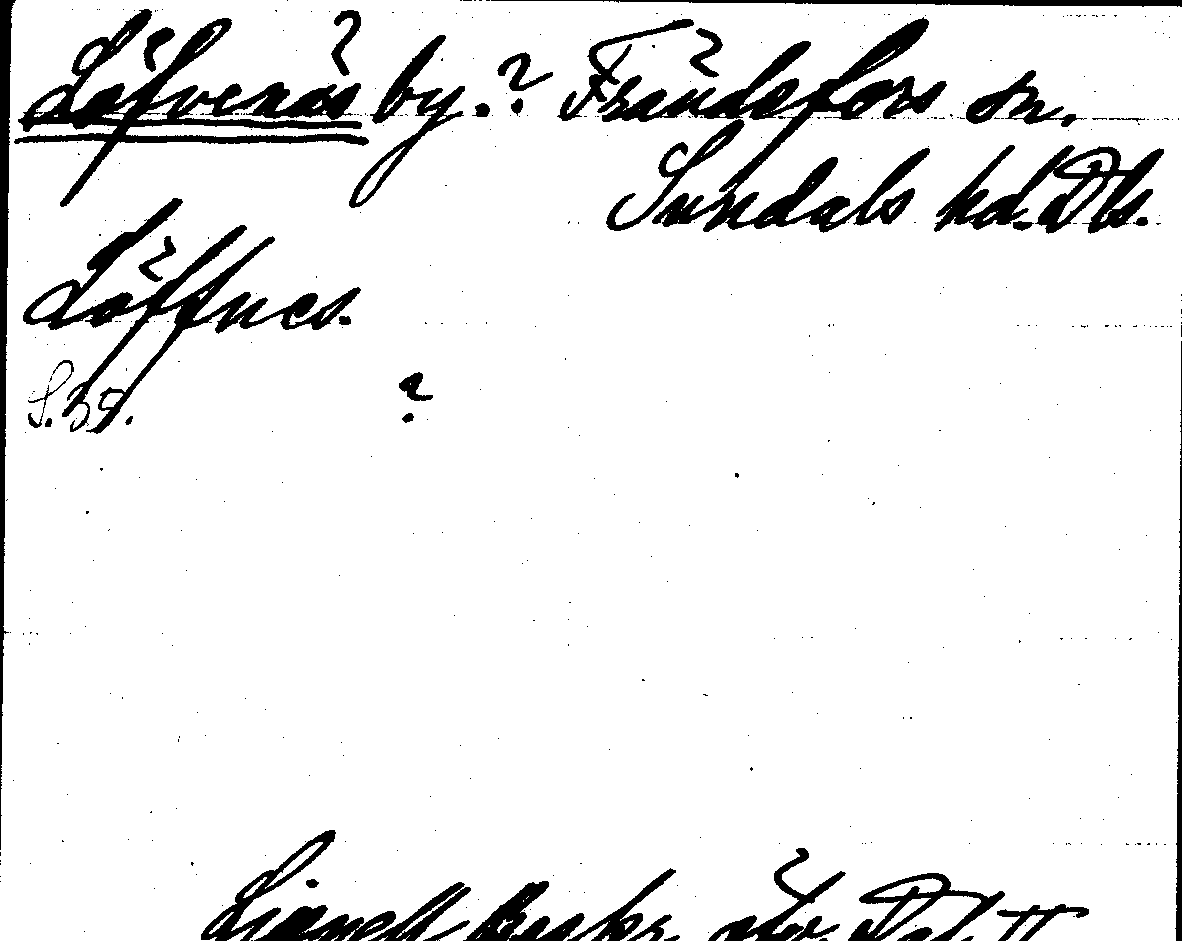 Löfvenäs by.? Frändefors sn.
Sundals hd. Dls.
Löffnes.
S. 39. ?
Lignell Beskr. öfv. Dal. II